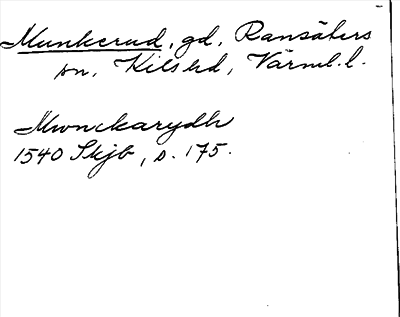 Munkerud, gd, Ransäters
sn, Kils hd, Värml. l.
Mwnckarydh
1540 Skjb, s. 175.